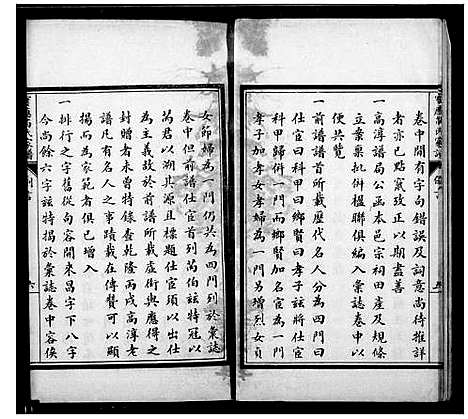 卷中間有字句錯誤及詞意尚待推詳
者亦已點竄改正以期盡善
一高淳譜局公函本邑宗祠田産及規條
立案稟批併楹聯俱編入彙誌卷中以
便共覽
一前譜譜首所載歷代名人分為四門曰
宦蹟曰科甲曰鄉賢曰孝子玆將仕宦
科甲歸併一門而鄉賢加名宦為一門
孝子加孝女孝婦為一門另增烈女貞
女節婦為一門仍共為四門列於彙誌
卷中但前譜仕宦首列伯玆特冠以
萬君以溯其源且標題仕宦須以出仕
為主義故於前譜所載虛銜與應得之
封贈者未曾特錄查乾隆丙戌高淳老
譜有名人之事蹟載在傳贊可以顯
揭而為家範者俱已增入
一排行之字舊從句容開來昌字下八字
今尚餘六字玆特揭於彙誌卷中容俟